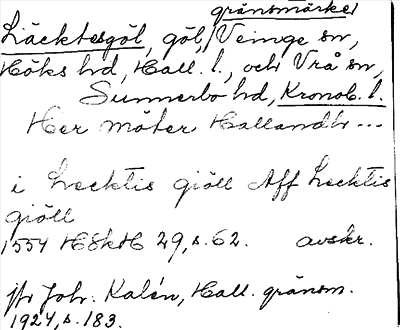 gränsmärke
Läcktesgöl, göl, Veinge sn,
Höks hd, Hall. l., och Vrå sn,
Sunnerbo hd, Kronob. l.
Her möter Hallandh ---
i Lecktis giöll Aff Lecktis
giöll
1554 HSkH 29, s. 62. avskr.
Joh. Kalén, Hall. gränsm.
1924, s. 183.